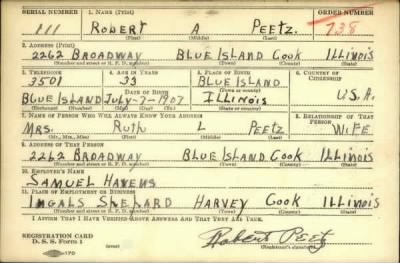 SERIAL NUMBER 1. NAME (Print) ORDER NUMBER
111 ROBERT A PEETZ. 738
(First) (Middle) (Last)
2. ADDRESS (Print)
2262 BROADWAY BLUE ISLAND COOK ILLINOIS
(Number and street or R. F. D. number) (Town) (County) (State)
3. TELEPHONE 4. AGE IN YEARS 5. PLACE OF BIRTH 6. COUNTRY OF CITIZENSHIP
3501 33 BLUE ISLAND
DATE OF BIRTH (Town or county) U.S.A.
BLUE ISLAND JULY-7-1907 ILLINOIS
(Exchange) (Mo.) (Day) (Yr.) (State or country)
7. NAME OF PERSON WHO WILL ALWAYS KNOW YOUR ADDRESS 8. RELATIONSHIP OF THAT PERSON
MRS. RUTH L PEETZ WIFE
(Mr., Mrs., Miss) (First) (Middle) (Last)
9. ADDRESS OF THAT PERSON
2262 BROADWAY BLUE ISLAND COOK ILLINOIS
(Number and street or R. F. D. number) (Town) (County) (State)
10. EMPLOYER'S NAME
SAMUEL HAVENS
11. PLACE OF EMPLOYMENT OR BUSINESS
INGALS SHEPARD HARVEY COOK ILLINOIS
(Number and street or R. F. D. number) (Town) (County) (State)
I AFFIRM THAT I HAVE VERIFIED ABOVE ANSWERS AND THAT THEY ARE TRUE.
REGISTRATION CARD
D. S. S. Form 1 (over) Robert Peetz
(Registrant's signature)